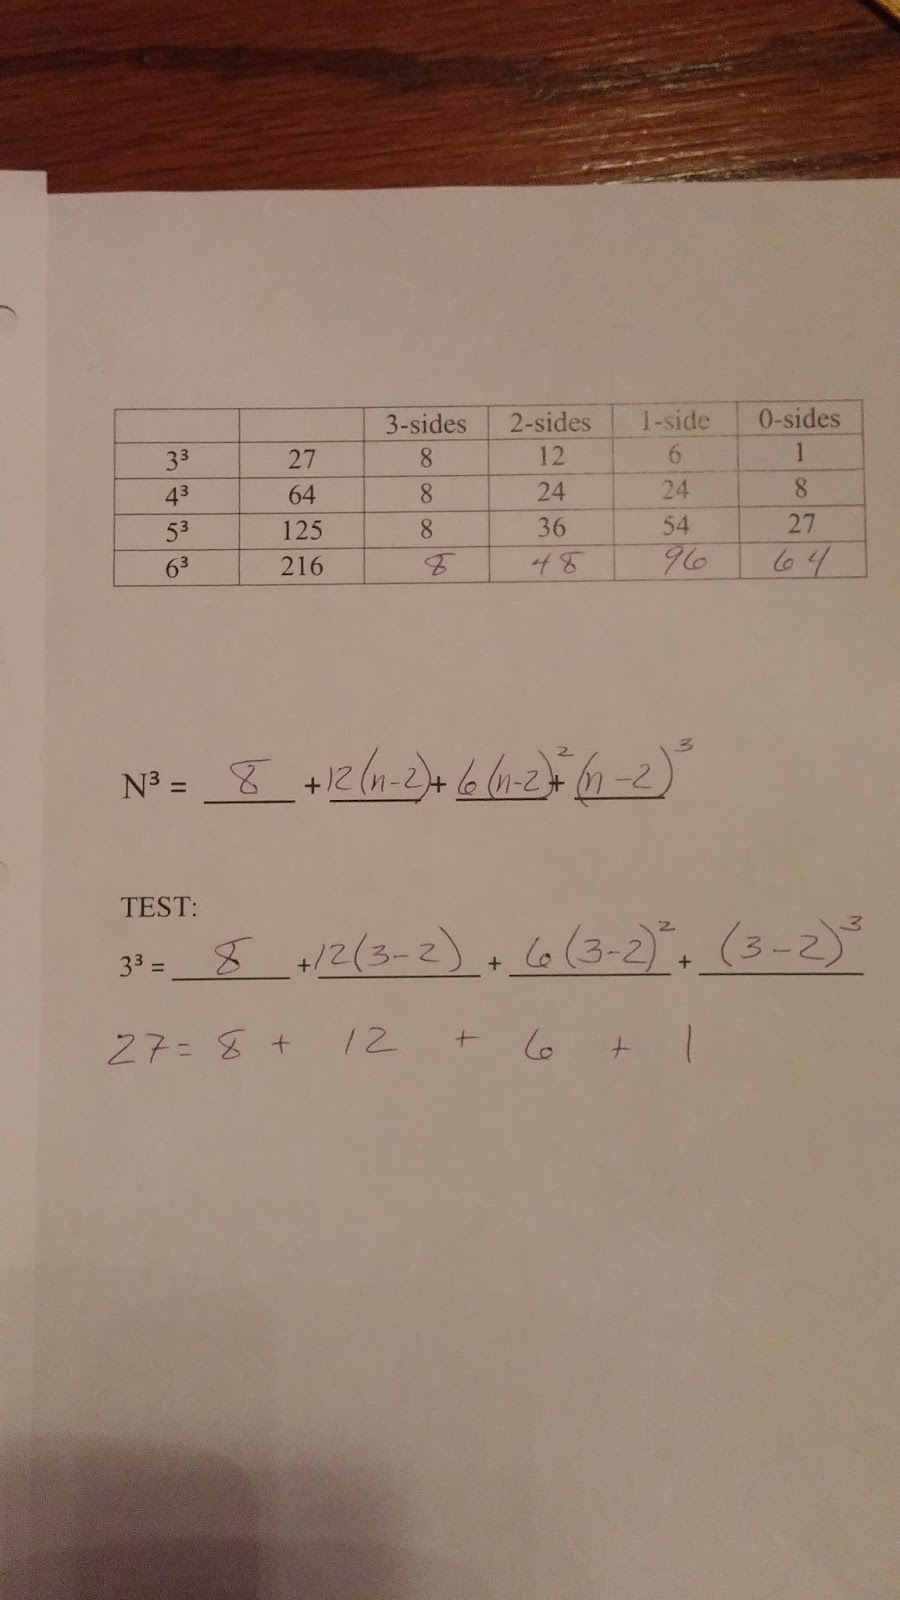 3-sides 2-sides 1-side 0-sides
3³ 27 8 12 6 1
4³ 64 8 24 24 8
5³ 125 8 36 54 27
6³ 216 8 48 96 64
N³ = 8 + 12(n-2) + 6(n-2)² + (n-2)³
TEST:
3³ = 8 + 12(3-2) + 6(3-2)² + (3-2)³
27 = 8 + 12 + 6 + 1